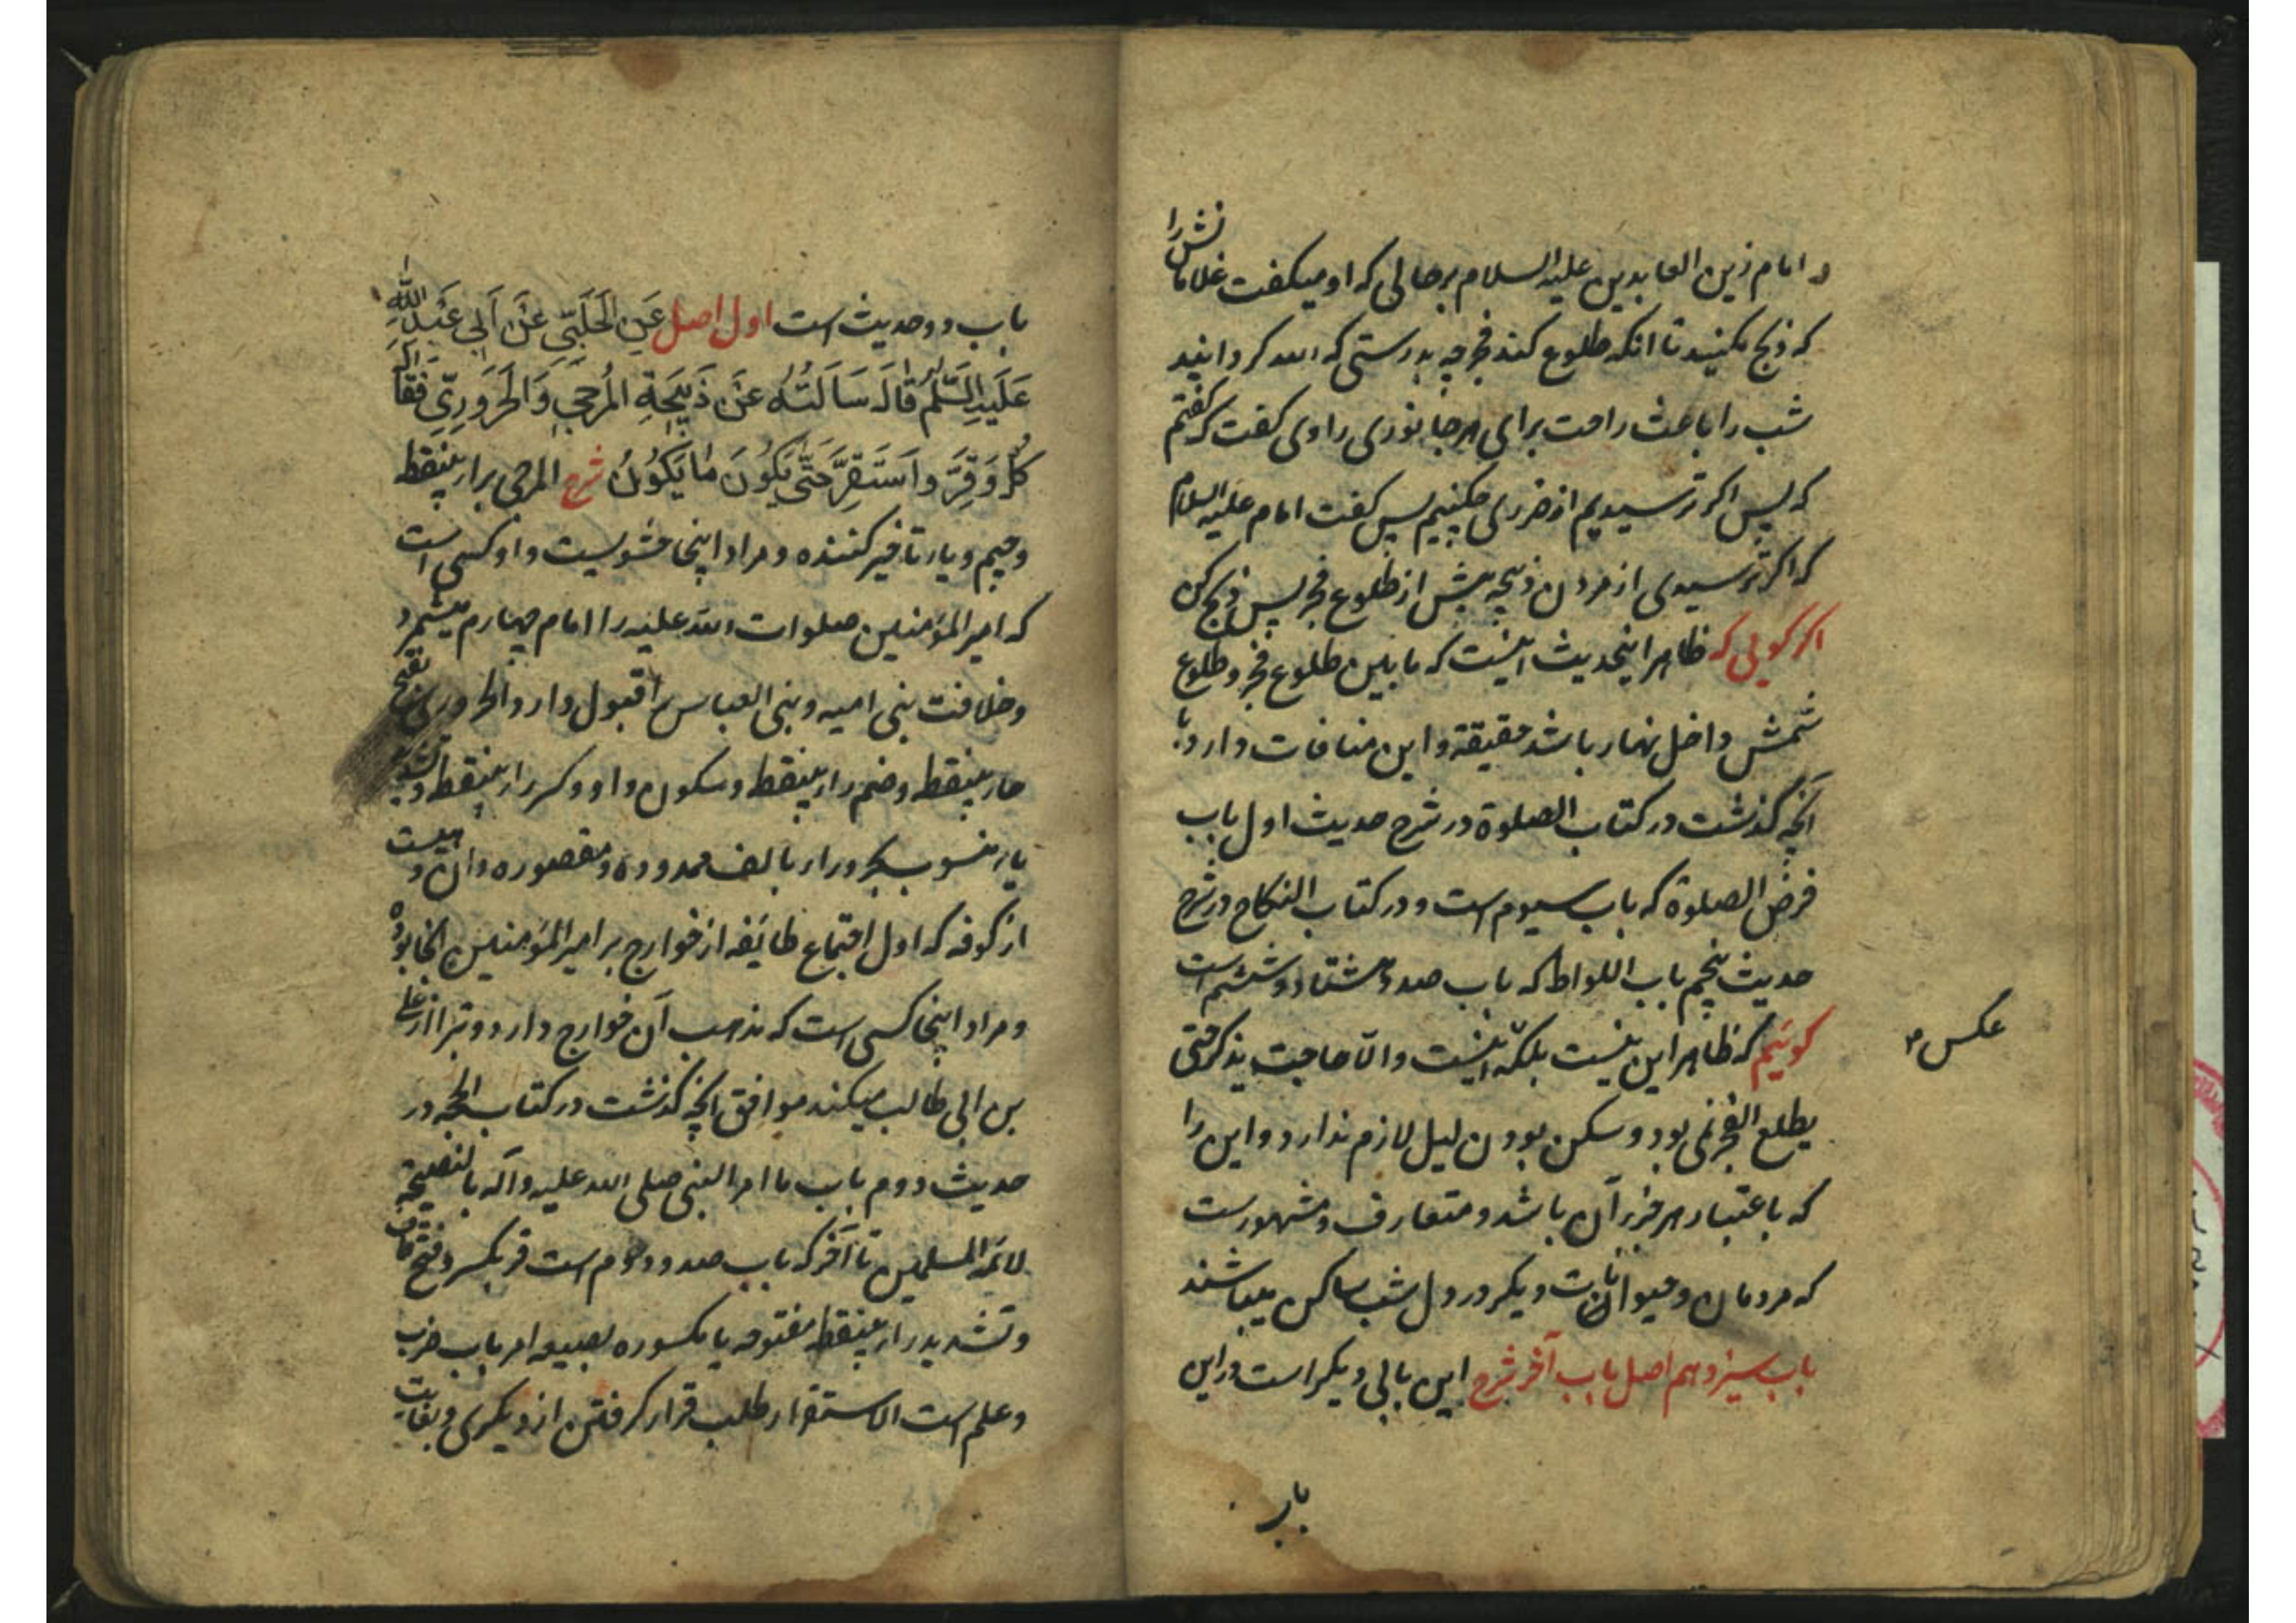 و امام زین العابدین علیه السلام بر حالی که او میکفت غلامانش را
که ذبح مکنید تا انکه طلوع کند فجر چه بدرستی که الله کردانید
شب را باعث راحت برای هر جانوری راوی کفت که کفتم
که پس اکر ترسیدیم از ضرری چکنیم پس کفت امام علیه السلام
که اکر ترسیدی از مردن ذبیحه پیش از طلوع فجر پس ذبح کن
اکر کویی که ظاهر اینحدیث اینست که مابین طلوع فجر و طلوع
شمس داخل نهار باشد حقیقة و این منافات دارد با
آنچه کذشت در کتاب الصلوة در شرح حدیث اول باب
فرض الصلوة که باب سیوم است و در کتاب النکاح در شرح
حدیث پنجم باب اللواط که باب صد و هشتاد و ششم است
کوئیم که ظاهر این نیست بلکه اینست والّا حاجت بذکر حتی
یطلع الفجر نمی بود و سکن بودن لیل لازم ندارد و این را
که باعتبار هر جزء آن باشد و متعارف و مشهورست
که مردمان و حیوانات دیکر در دل شب ساکن میباشند
باب سیزدهم اصل باب آخر شرح این بابی دیکر است در این
باب
عکس
باب دو حدیث است اول اصل عَنِ الْحَلَبِيِّ عَنْ أَبِي عَبْدِ اللَّهِ
عَلَيْهِ السَّلَمُ قَالَ سَأَلْتُهُ عَنْ ذَبِيحَةِ الْمُرْجِي وَالْحَرُورِيِّ فَقَالَ
كُلْ وَقِرَّ وَاسْتَقِرَّ حَتَّى يَكُونَ مَا يَكُونُ شرح المرجی براء بینقطه
و جیم و یاء تاخیر کننده و مراد اینجا حشویست و او کسی است
که امیر المؤمنین صلوات الله علیه را امام چهارم میشمرد
و خلافت بنی امیه و بنی العباس را قبول دارد الحروری بفتح
حاء بینقطه و ضم راء بینقطه و سکون واو و کسر راء بینقطه و تشدید
یاء منسوب بحروراء بالف ممدوده و مقصوره و ان دهیست
از کوفه که اول اجتماع طائفه از خوارج بر امیر المؤمنین انجا بوده
و مراد اینجا کسی است که مذهب آن خوارج دارد و تبرا از علی
بن ابی طالب میکند موافق آنچه کذشت در کتاب الحجه در
حدیث دوم باب ما امر النبی صلی الله علیه وآله بالنصیحة
لائمة المسلمین تا آخر که باب صد و دوم است قر بکسر و فتح قاف
و تشدید راء بینقطه مفتوحه یا مکسوره بصیغه امر باب ضرب
و علم است الاستقرار طلب قرار کرفتن از دیکری و بغایت